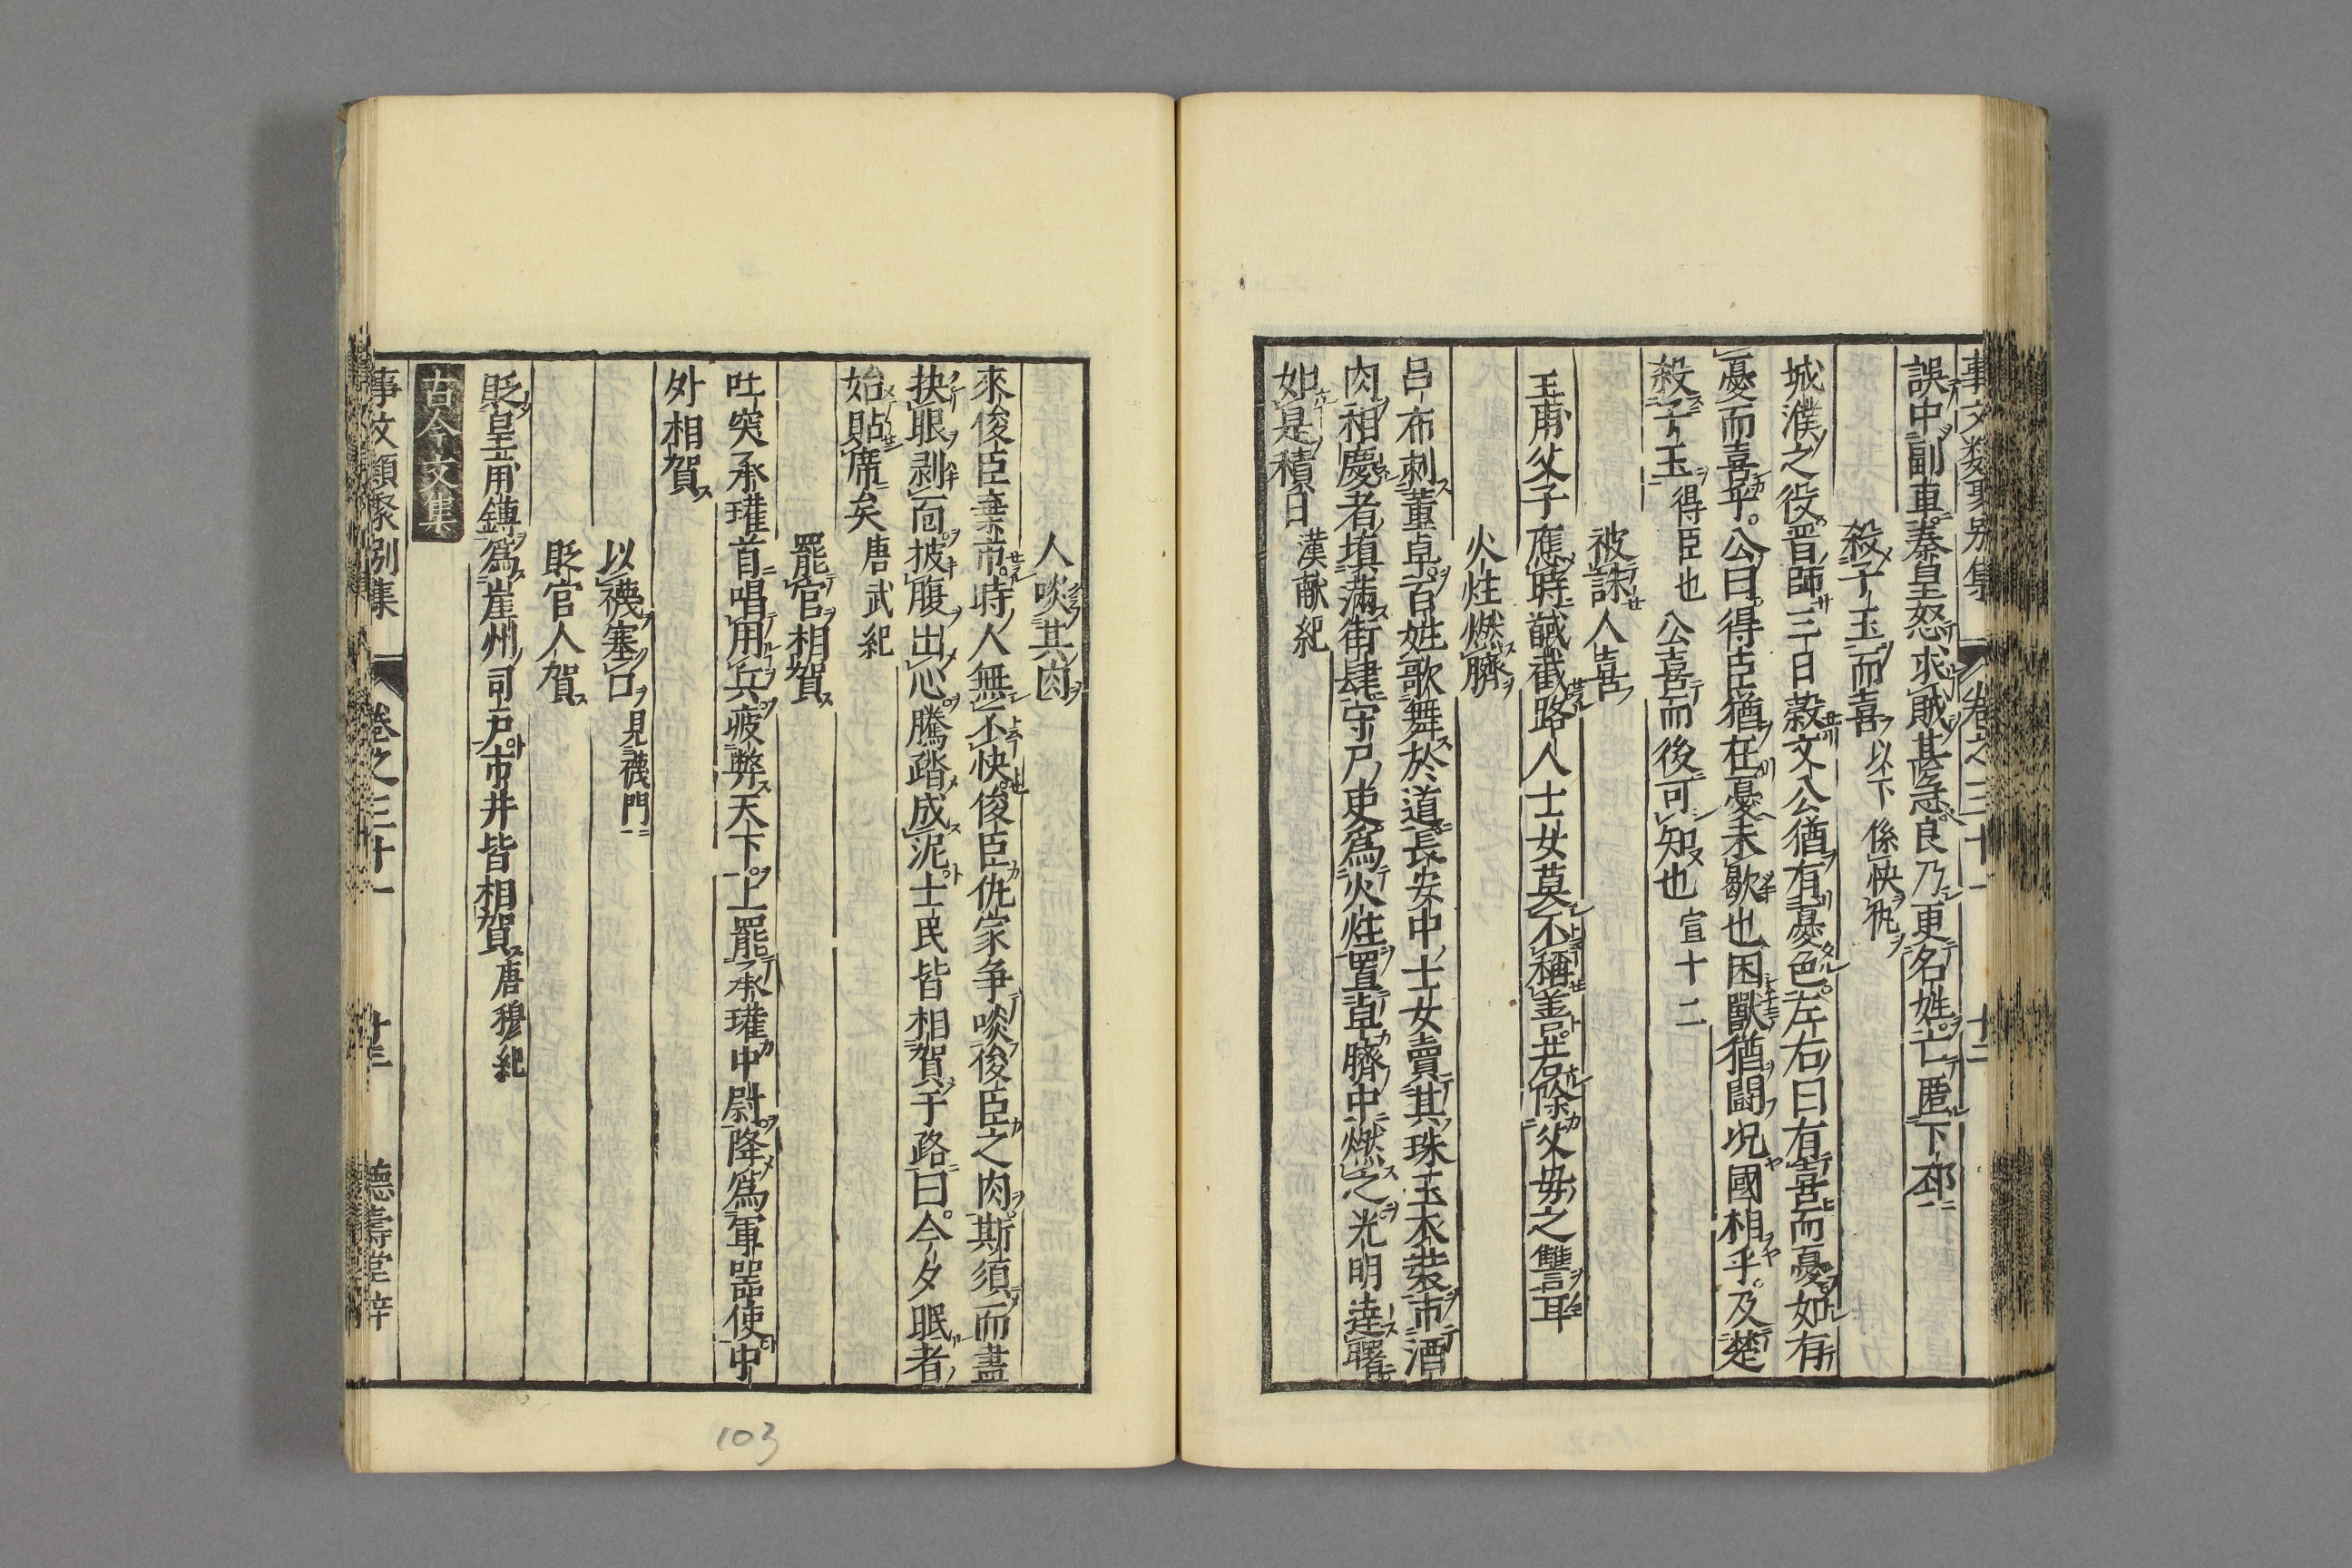 事文類聚別集 卷之三十一 十二
誤中副車秦皇怒求賊甚急良乃更名姓亡匿下邳
殺子玉而喜 以下係快仇
城濮之役晉師三日穀文公猶有憂色左右曰有喜而憂如有
憂而喜乎公曰得臣猶在憂未歇也困獸猶鬪况國相乎及楚
殺子玉 得臣也 公喜而後可知也 宣十二
被誅人喜
王甫父子應時馘截路人士女莫不稱善若除父母之讐耳
火炷燃臍
呂布刺董卓百姓歌舞於道長安中士女賣其珠玉衣裝市酒
肉相慶者填滿街肆守尸吏爲火炷置卓臍中燃之光明達曙
如是積日 漢献紀
人啖其肉
來俊臣棄市時人無不快俊臣仇家爭啖俊臣之肉斯須而盡
抉眼剥面披腹出心騰踏成泥士民皆相賀于路曰今夕眠者
始貼席矣 唐武紀
罷官相賀
吐突承璀首唱用兵疲弊天下上罷承璀中尉降爲軍器使中
外相賀
以襪塞口 見襪門
貶官人賀
貶皇甫鎛爲崖州司戶市井皆相賀 唐穆紀
古今文集
事文類聚別集 卷之三十一 十三 德壽堂梓
103